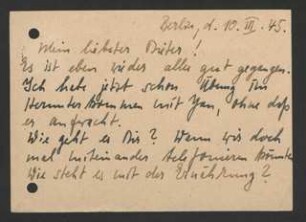 Berlin, d. 19. III. 45.
Mein liebster Dieter!
Es ist eben wieder alles gut gegangen.
Ich habe jetzt schon Übung im
Herunterkommen mit Jan, ohne daß
er aufwacht.
Wie geht es Dir? Wenn wir doch
mal miteinander telefonieren könnten
Wie steht es mit der Ernährung?